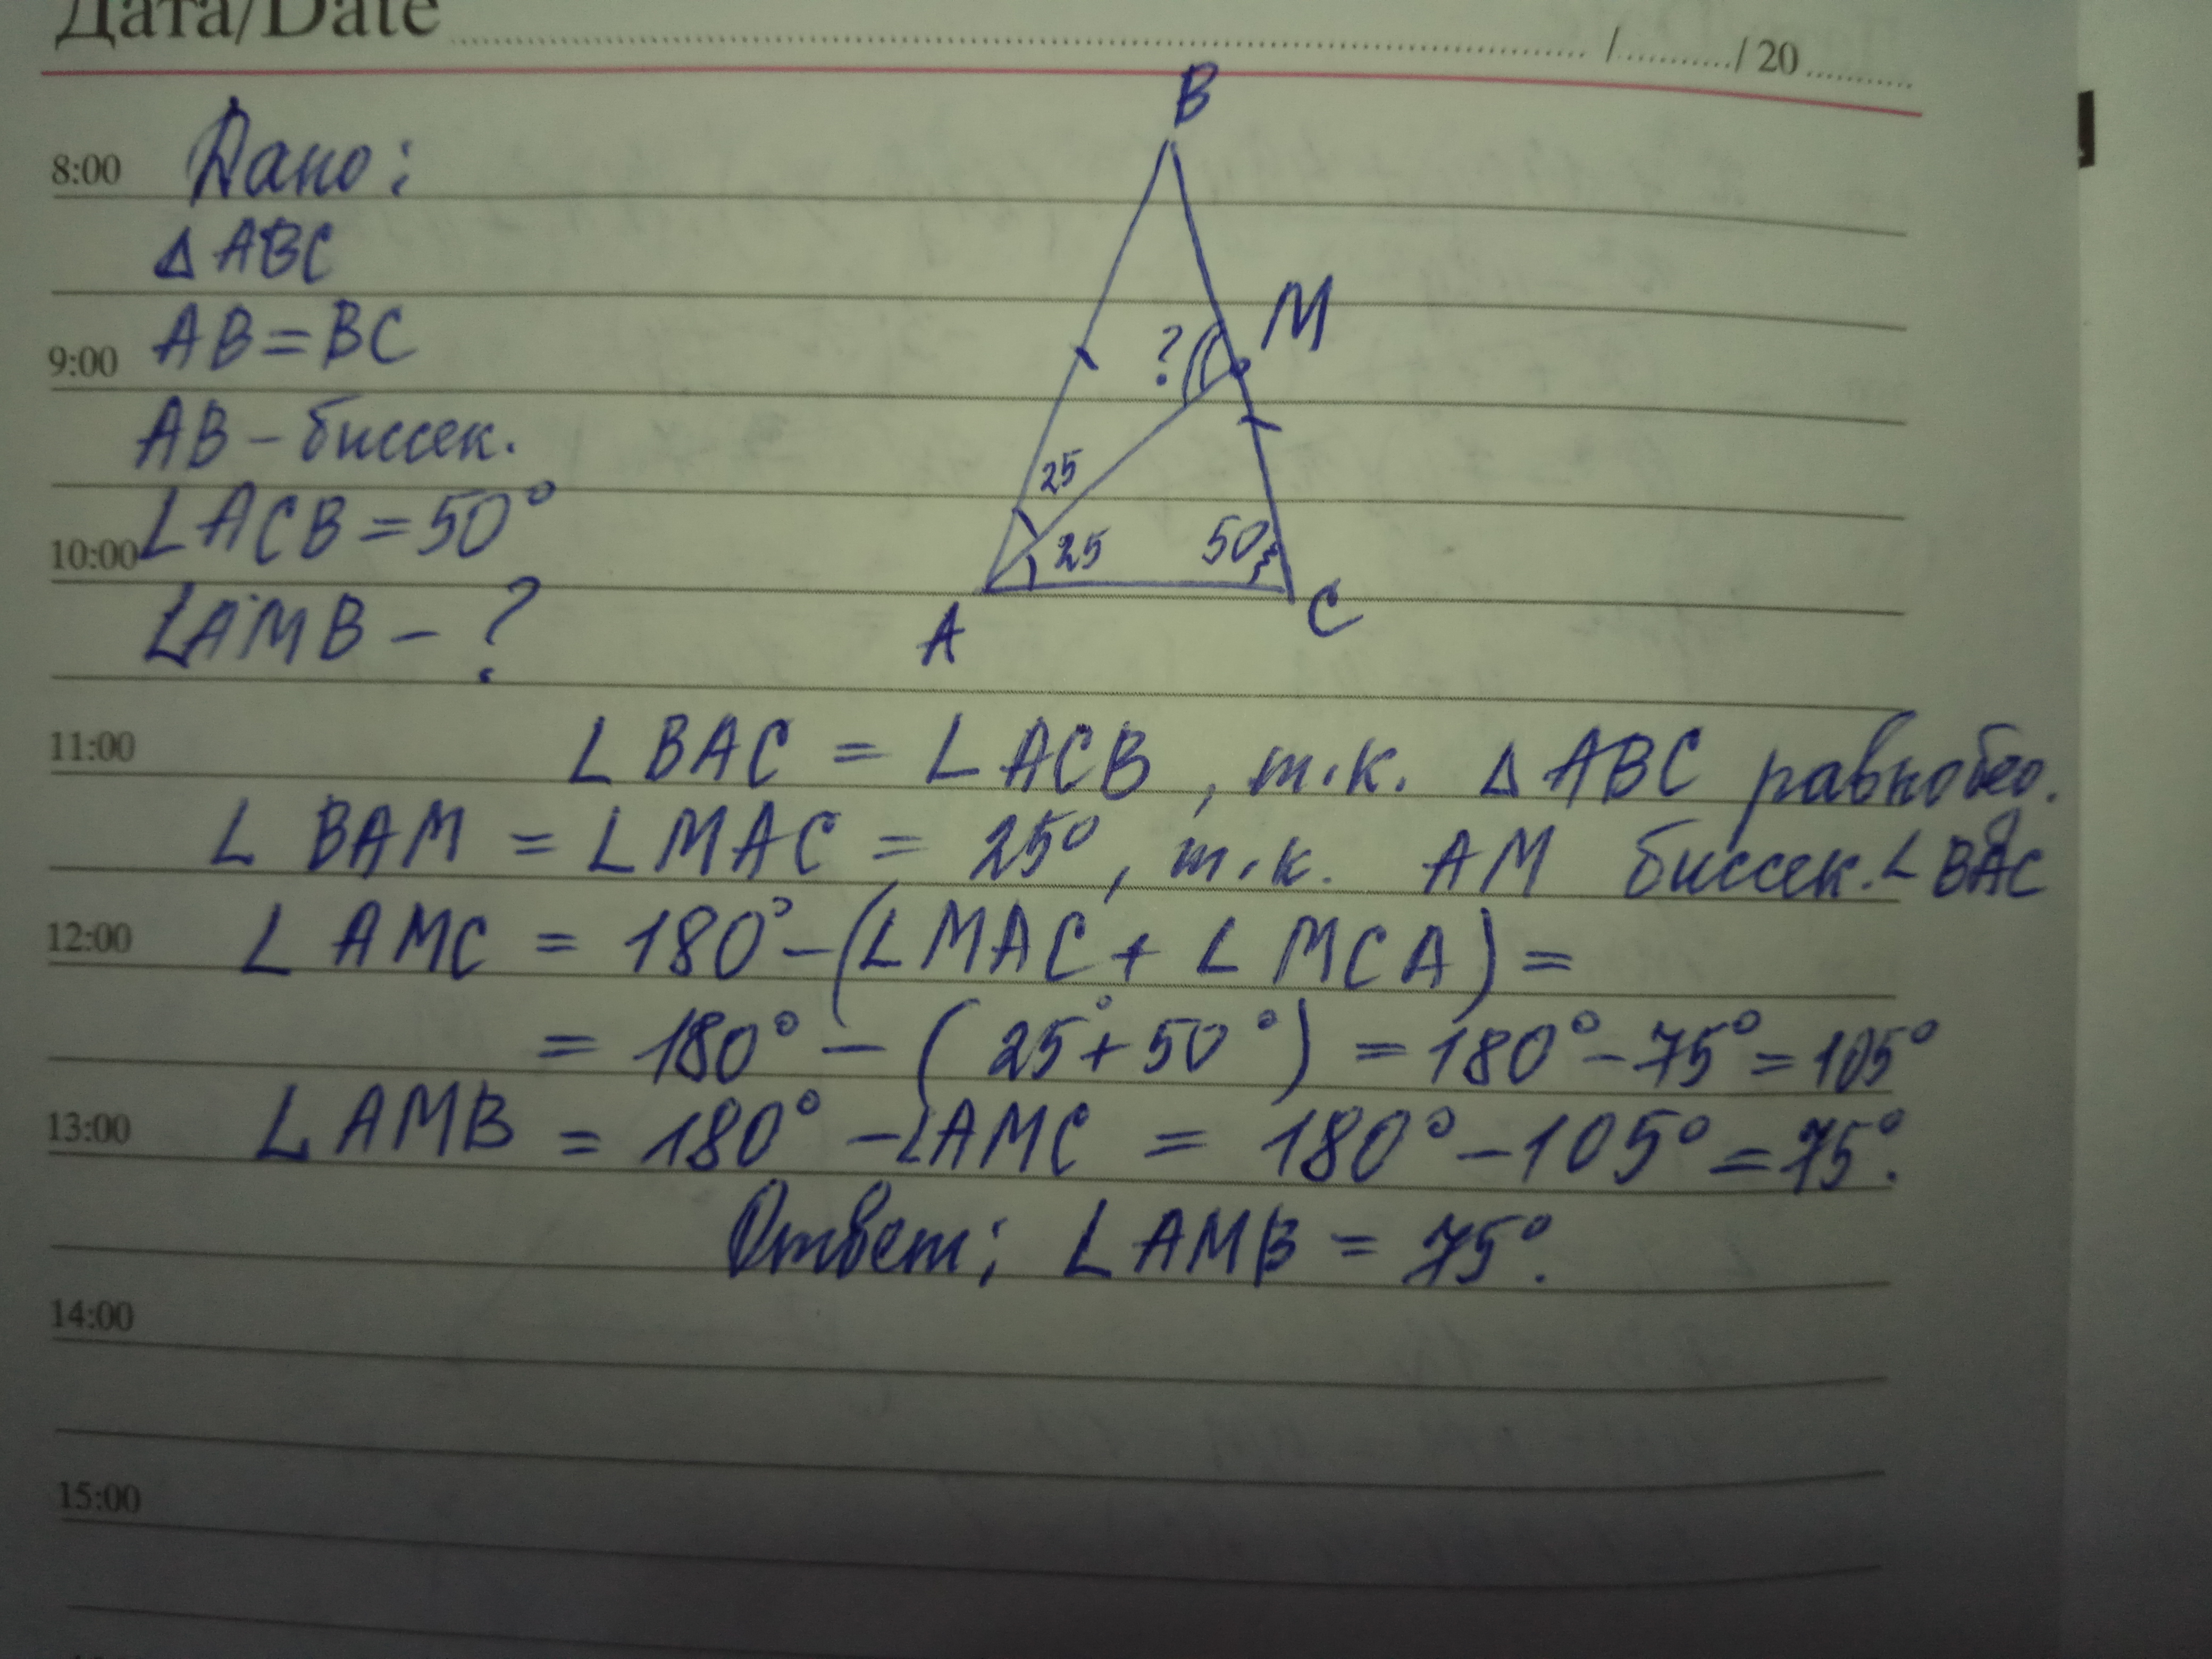 Дата/Date ........ / ......... / 20 .........
B
8:00 Дано:
Δ ABC
M
9:00 AB = BC
?
AB – биссек.
25
10:00 ∠ACB = 50°
25 50
∠AMB – ?
A C
11:00 ∠ BAC = ∠ ACB, т.к. Δ ABC равнобед.
∠ BAM = ∠ MAC = 25°, т.к. AM биссек. ∠ BAC
12:00 ∠ AMC = 180° – (∠ MAC + ∠ MCA) =
= 180° – (25° + 50°) = 180° – 75° = 105°
13:00 ∠ AMB = 180° – ∠AMC = 180° – 105° = 75°.
Ответ: ∠ AMB = 75°.
14:00
15:00